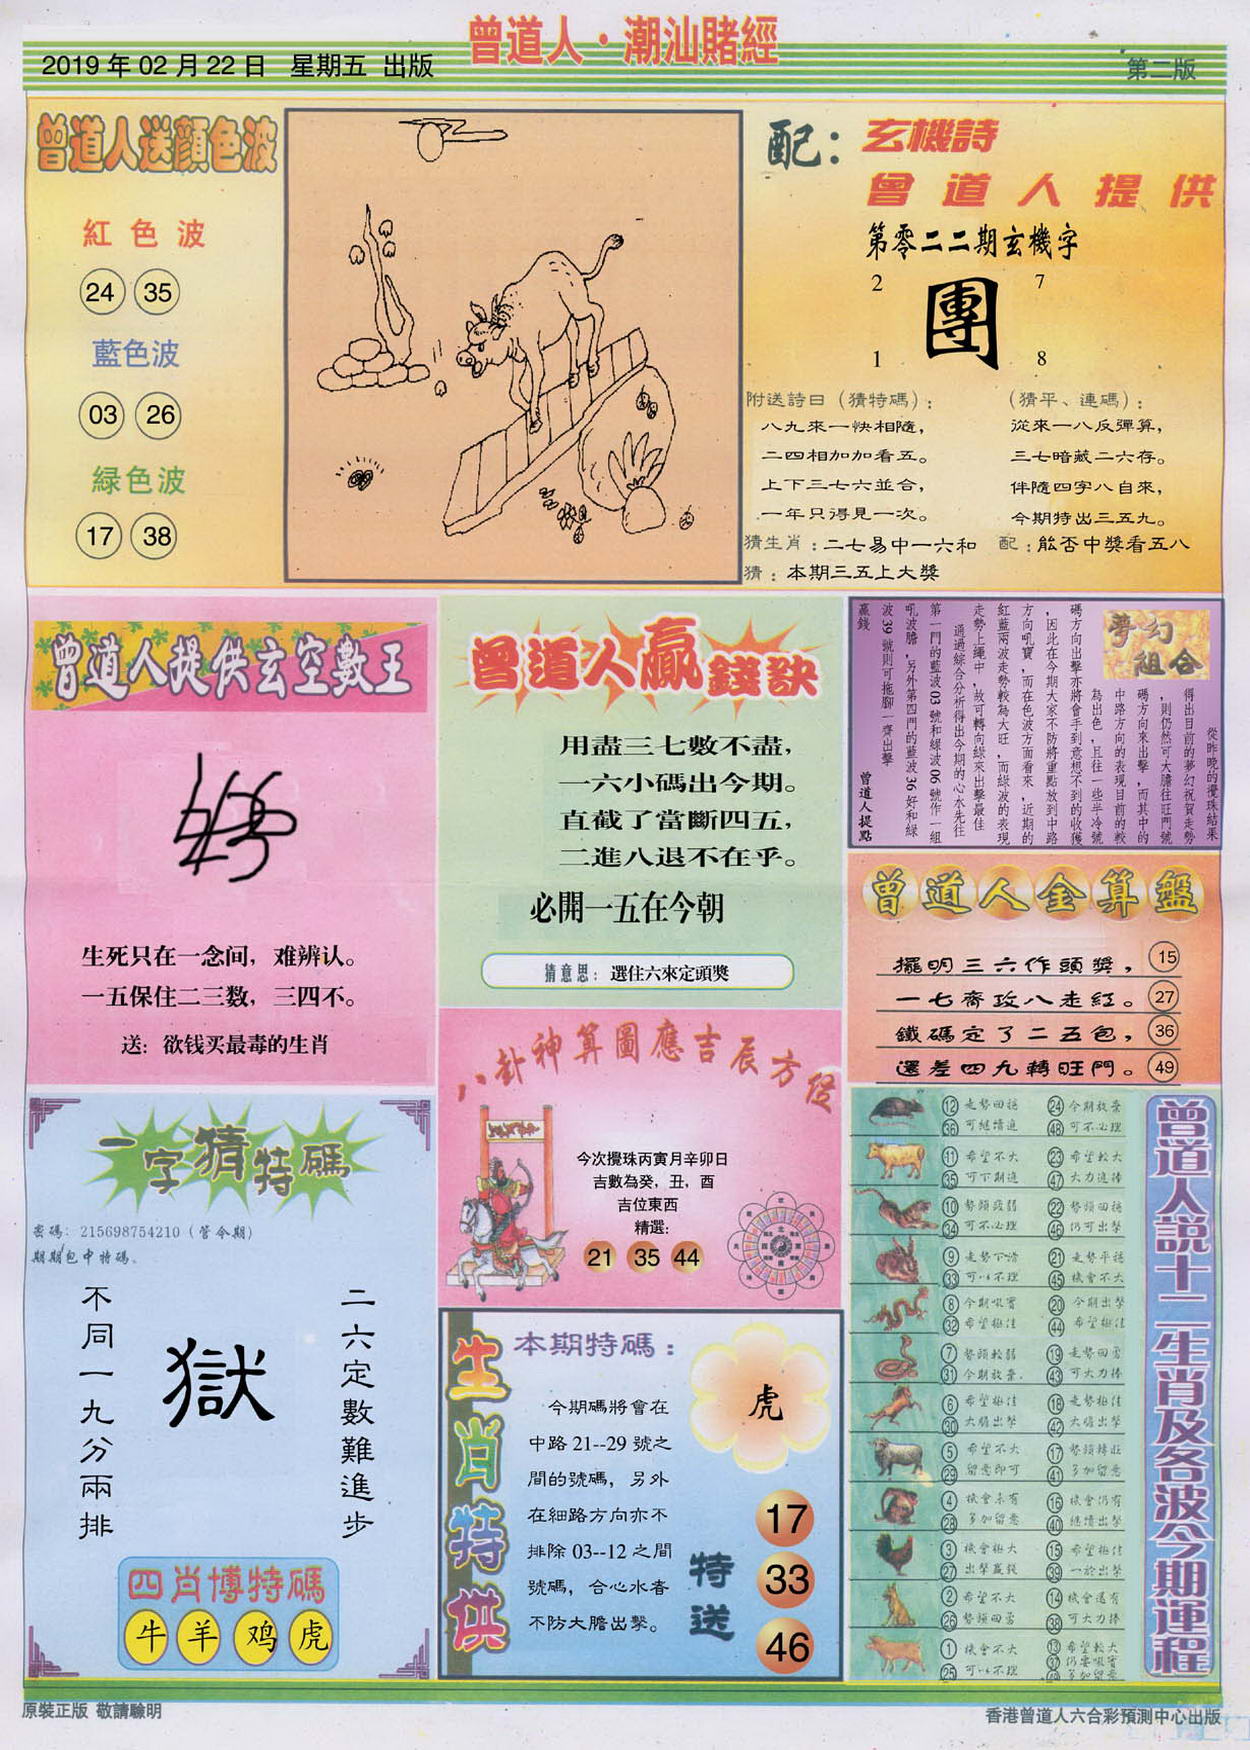 曾道人·潮汕賭經
2019年02月22日 星期五 出版
第二版
曾道人送顔色波
紅色波
24 35
藍色波
03 26
緑色波
17 38
配：
玄機詩
曾道人提供
第零二二期玄機字
2 7
團
1 8
附送詩日（猜特碼）：
八九來一快相隨，
二四相加加看五。
上下三七六並合，
一年只得見一次。
（猜平、連碼）：
從來一八反彈算，
三七暗蔵二六存。
伴隨四字八自來，
今期特出三五九。
猜生肖：二七易中一六和
配：能否中獎看五八
猜：本期三五上大獎
曾道人提供玄空數王
生死只在一念间，难辨认。
一五保住二三数，三四不。
送：欲钱买最毒的生肖
曾道人贏錢訣
用盡三七數不盡，
一六小碼出今期。
直截了當斷四五，
二進八退不在乎。
必開一五在今朝
猜意思：選住六來定頭獎
夢幻組合
從昨晚的攪珠結果
得出目前的夢幻祝賀走勢
，則仍然可大膽往旺門號
碼方向來出擊，而其中的
中路方向的表現目前的較
為出色，且往一些半冷號
碼方向出擊亦將會手到意想不到的收獲
，因此在今期大家不防將重點放到中路
方向吼寶，而在色波方面看來，近期的
紅藍兩波走勢較為大旺，而綠波的表現
走勢上繩中，故可轉向綠來出擊最佳
通過綜合分析得出今期的心水先往
第一門的藍波03號和綠波06號作一組
吼波膽，另外第四門的藍波36好和綠
波39號則可拖腳一齊出擊
贏錢
曾道人提點
曾道人金算盤
擺明三六作頭獎， 15
一七齊攻八走紅。 27
鐵碼定了二五包， 36
還差四九轉旺門。 49
八卦神算圖應吉辰方位
今次攪珠丙寅月辛卯日
吉數為癸，丑，酉
吉位東西
精選：
21 35 44
一字猜特碼
密碼：215698754210（管令期）
期期包中特碼。
二六定數難進步
獄
不同一九分兩排
四肖博特碼
牛 羊 鸡 虎
生肖特供
本期特碼：
今期碼將會在
中路21--29號之
間的號碼，另外
在細路方向亦不
排除03--12之間
號碼，合心水者
不防大膽出擊。
虎
特送
17
33
46
曾道人說十二生肖及各波今期運程
12 走勢回穩 24 今期放棄
36 可継續追 48 可不必理
11 希望不大 23 希望較大
35 可下期追 47 大力追捧
10 勢頭疲弱 22 勢頭回穩
34 可不必理 46 仍可出擊
9 走勢下滑 21 走勢平穩
33 可以不理 45 機會不大
8 今期吸寶 20 今期出擊
32 希望極佳 44 希望極佳
7 勢頭較弱 19 走勢回勇
31 今期放棄. 43 可大力捧
6 希望極佳 18 走勢極佳
30 大膽出擊 42 大膽出擊
5 希望不大 17 勢頭轉旺
29 留意即可 41 多加留意
4 機會未有 16 機會仍有
28 多加留意 40 継續出擊
3 機會極大 15 希望極佳
27 出擊贏錢 39 一於出擊
2 希望不大 14 機會還有
26 勢頭回勇 38 可大力捧
1 機會不大 13 希望較大
25 可以不理 37 仍要吸寶
49 多加留意
原裝正版 敬請驗明
香港曾道人六合彩預測中心出版